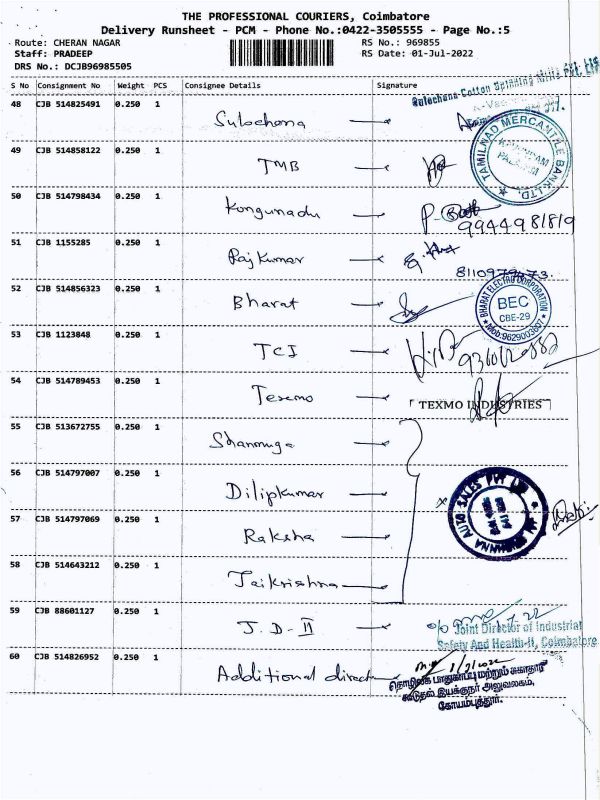 THE PROFESSIONAL COURIERS, Coimbatore
Delivery Runsheet - PCM - Phone No.:0422-3505555 - Page No.:5
Route: CHERAN NAGAR RS No.: 969855
Staff: PRADEEP RS Date: 01-Jul-2022
DRS No.: DCJB96985505
S No Consignment No Weight PCS Consignee Details Signature
Sulochana Cotton Spinning Mills Pvt. Ltd
48 CJB 514825491 0.250 1 Sulochana
49 CJB 514858122 0.250 1 TMB
TAMILNAD MERCANTILE BANK LTD.
50 CJB 514798434 0.250 1 Kongunadu
9944981819
51 CJB 1155285 0.250 1 Rajkumar
52 CJB 514856323 0.250 1 Bharat
BHARAT ELECTRO CORPORATION
BEC
CBE-29
Mob:9629003607
53 CJB 1123848 0.250 1 TCI
54 CJB 514789453 0.250 1 Texmo
TEXMO INDUSTRIES
55 CJB 513672755 0.250 1 Shanmuga
56 CJB 514797007 0.250 1 Dilipkumar
AUTO SALES PVT LTD
57 CJB 514797069 0.250 1 Raksha
58 CJB 514643212 0.250 1 Jaikrishna
59 CJB 88601127 0.250 1 J.D-II
o/o Joint Director of Industrial
Safety And Health-II, Coimbatore
60 CJB 514826952 0.250 1 Additional direct
1/7/2022
தொழிலக பாதுகாப்பு மற்றும் சுகாதார
கூடுதல் இயக்குநர் அலுவலகம்,
கோயம்புத்தூர்.